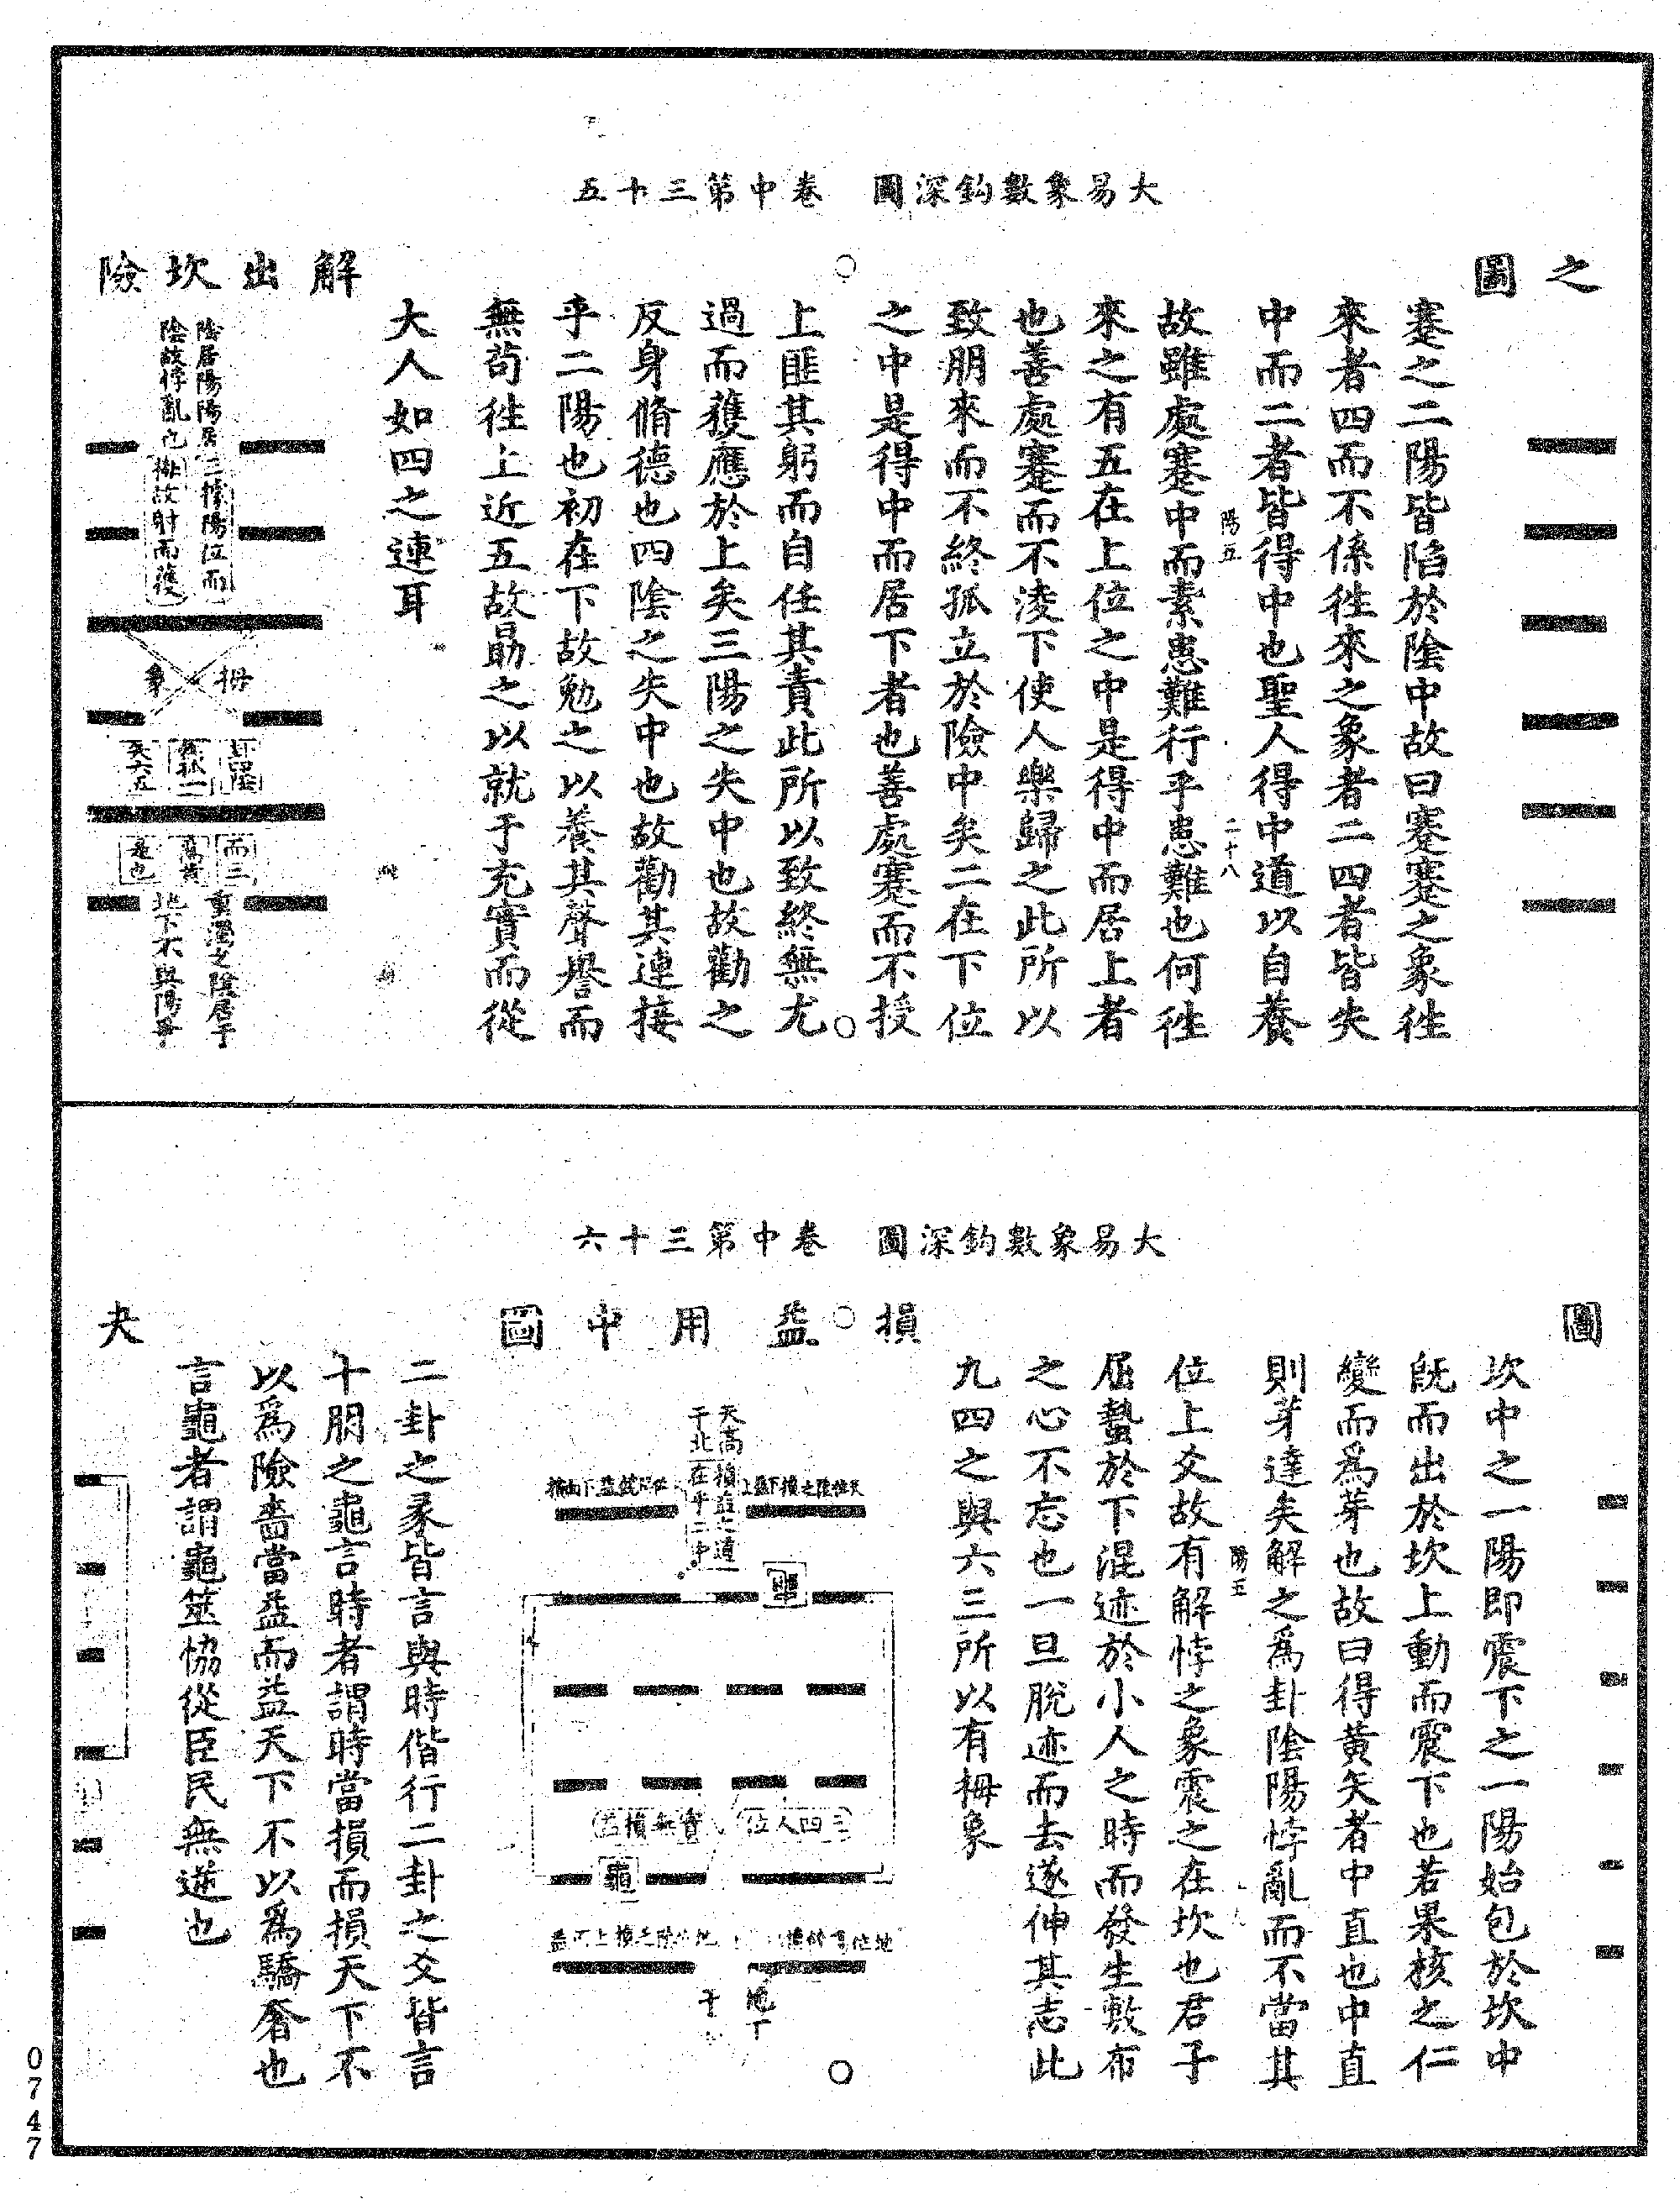 大易象數鈎深圖　卷中第三十五
之圖
蹇之二陽皆陷於陰中故曰蹇蹇之象徃
來者四而不係徃來之象者二四者皆失
中而二者皆得中也聖人得中道以自養
陽五
二十八
故雖處蹇中而素患難行乎患難也何徃
來之有五在上位之中是得中而居上者
也善處蹇而不淩下使人樂歸之此所以
致朋來而不終孤立於險中矣二在下位
之中是得中而居下者也善處蹇而不授
上匪其躬而自任其責此所以致終無尤
過而獲應於上矣三陽之失中也故勸之
反身脩德也四陰之失中也故勸其連接
乎二陽也初在下故勉之以養其聲譽而
無苟徃上近五故勗之以就于充實而從
大人如四之連耳
解出坎險
陰居陽陽居
陰故悖亂也
三悖陽位而
故射而獲
拇象
而三
是也
重陰居于
地下不與陽爭
大易象數鈎深圖　卷中第三十六
圖
坎中之一陽即震下之一陽始包於坎中
旣而出於坎上動而震下也若果核之仁
變而爲芽也故曰得黃矢者中直也中直
則芽達矣解之爲卦陰陽悖亂而不當其
陽五
位上爻故有解悖之象震之在坎也君子
屈蟄於下混迹於小人之時而發生敷布
之心不忘也一旦脫迹而去遂伸其志此
九四之與六三所以有拇象
損益用中圖
天高
于北
損益之道
在乎二中
龜
三四人位
實無損益
龜
二卦之彖皆言與時偕行二卦之爻皆言
十朋之龜言時者謂時當損而損天下不
以爲險嗇當益而益天下不以爲驕奢也
言龜者謂龜筮恊從臣民無逆也
夬
0747